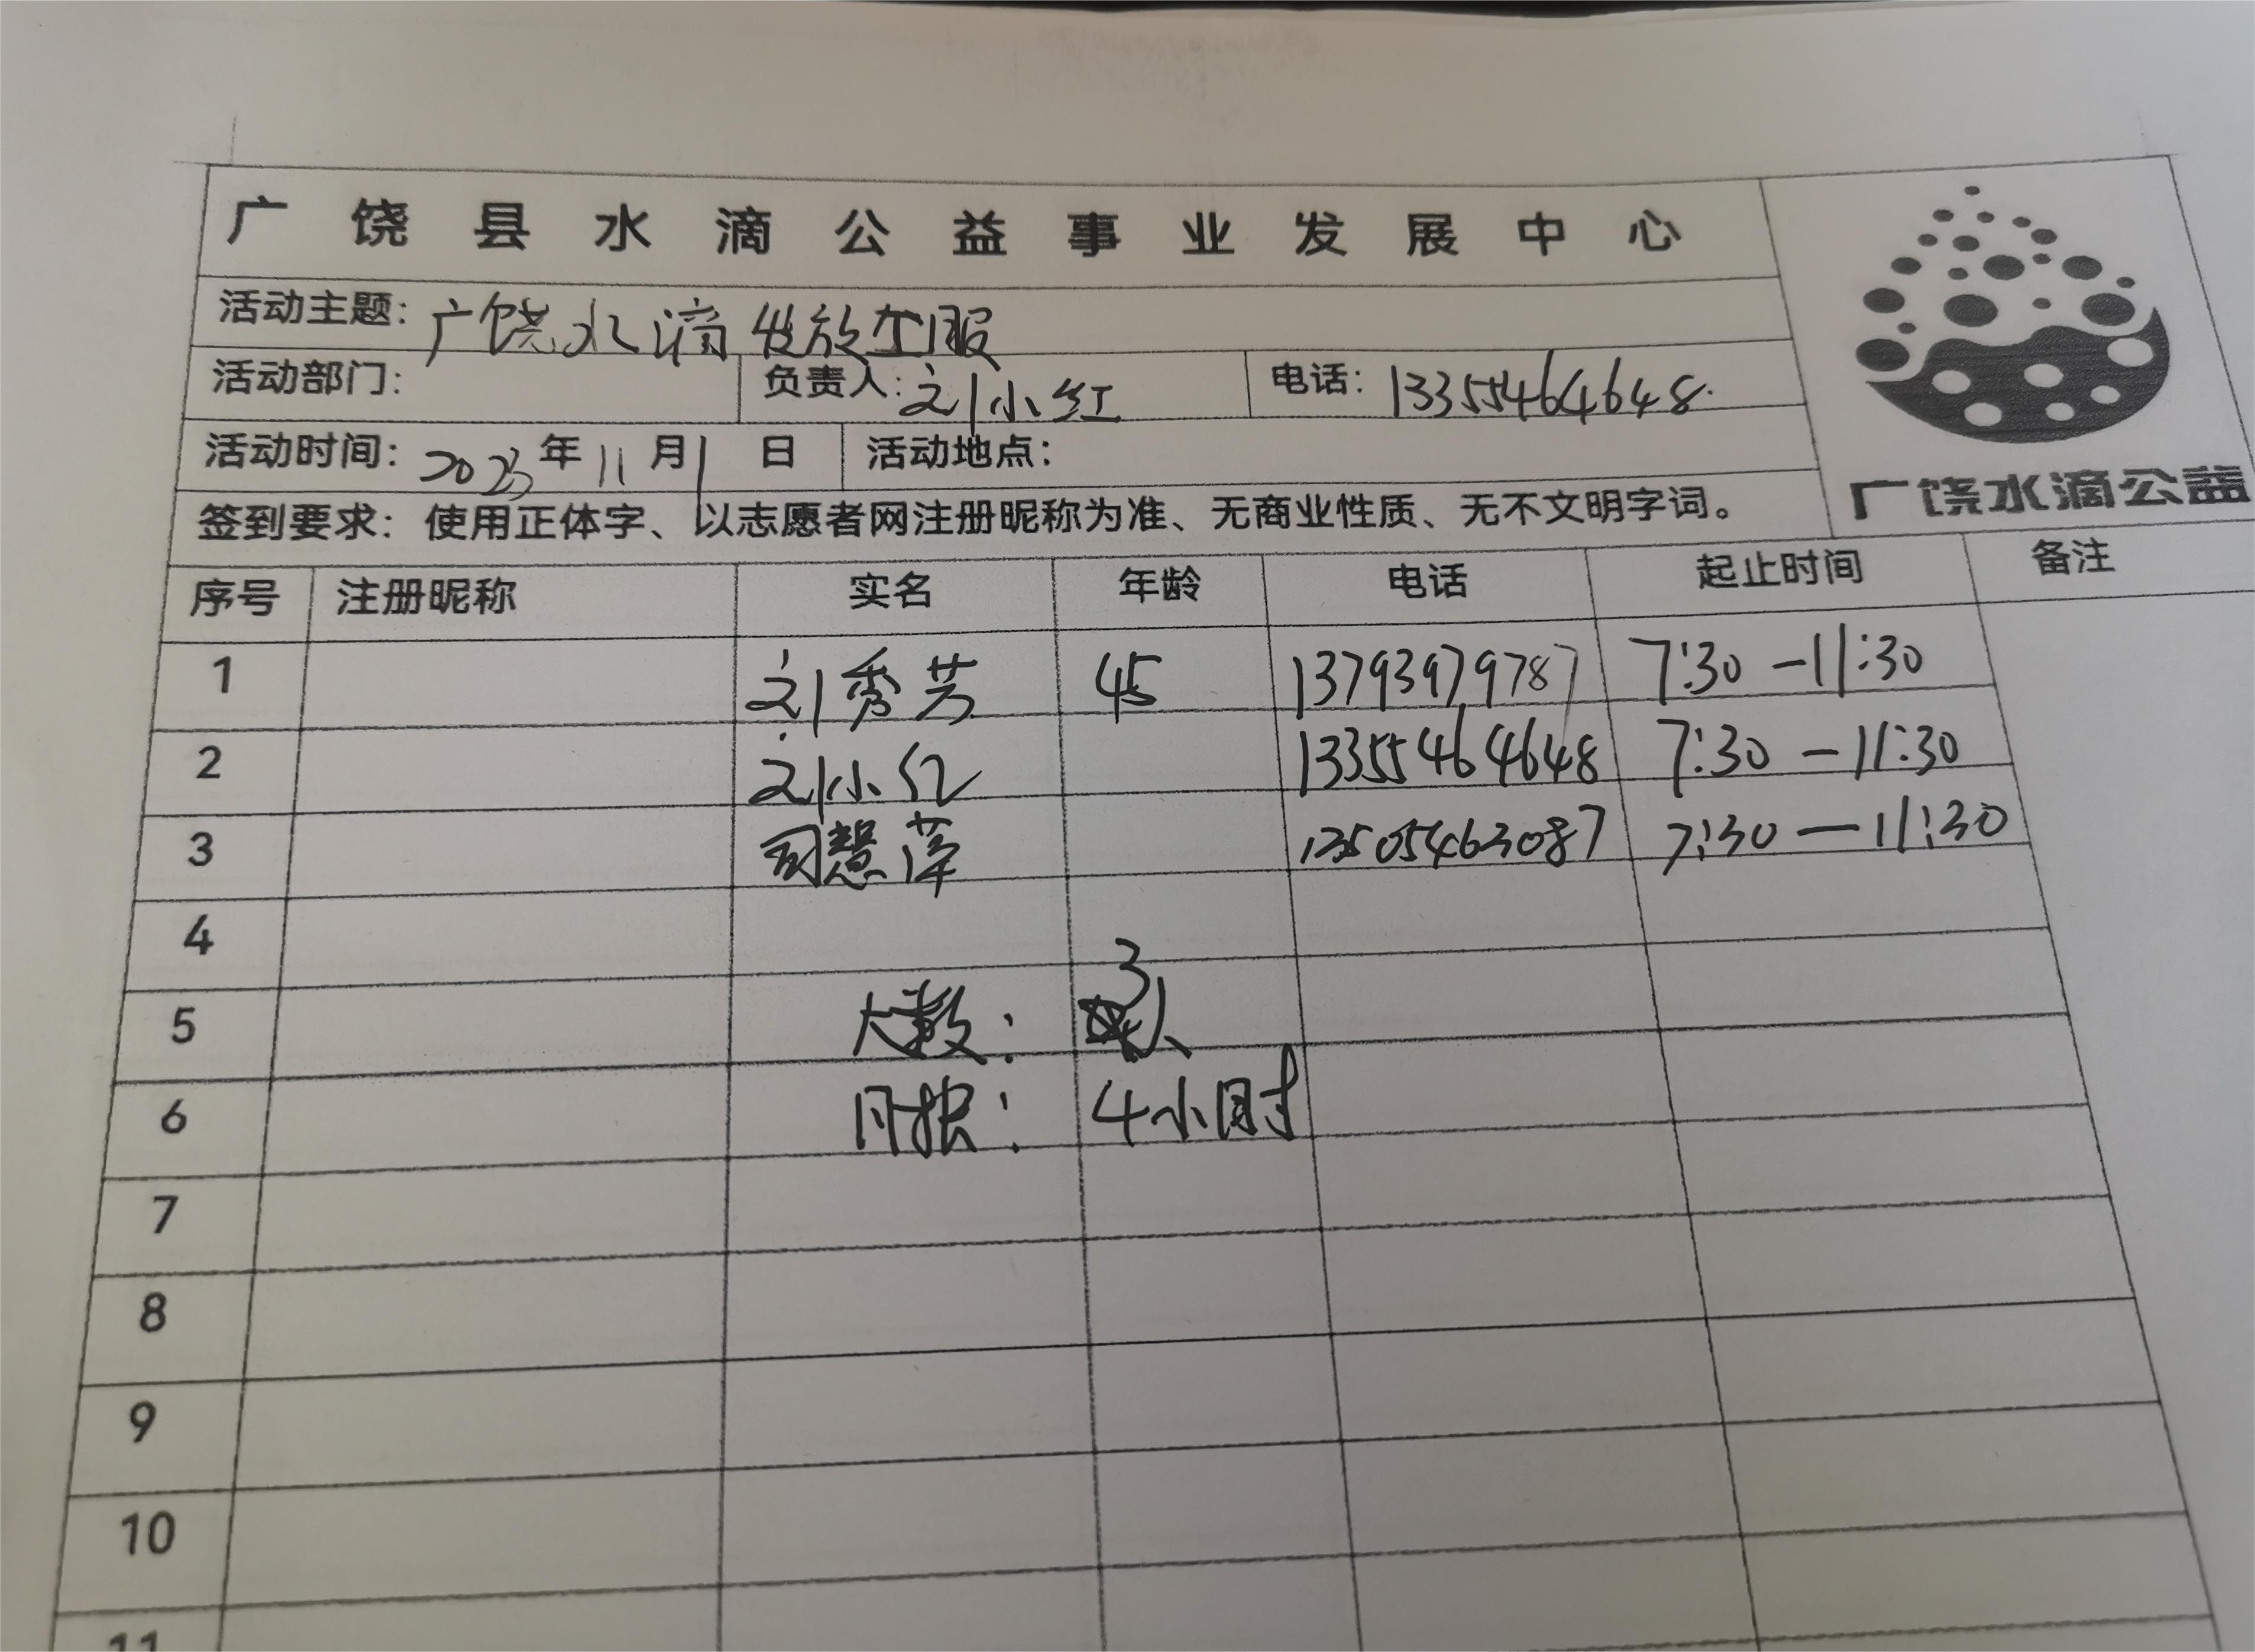 广饶县水滴公益事业发展中心
活动主题：广饶水滴发放工服
活动部门： 负责人：刘小红 电话：13355464648.
活动时间：2023年11月1日 活动地点：
广饶水滴公益
签到要求：使用正体字、以志愿者网注册昵称为准、无商业性质、无不文明字词。
序号 注册昵称 实名 年龄 电话 起止时间 备注
1 刘秀芳 45 13793979787 7:30-11:30
2 刘小红 13355464648 7:30-11:30
3 司慧萍 13505463087 7:30-11:30
4
5 人数：3人
6 4小时
7
8
9
10
11